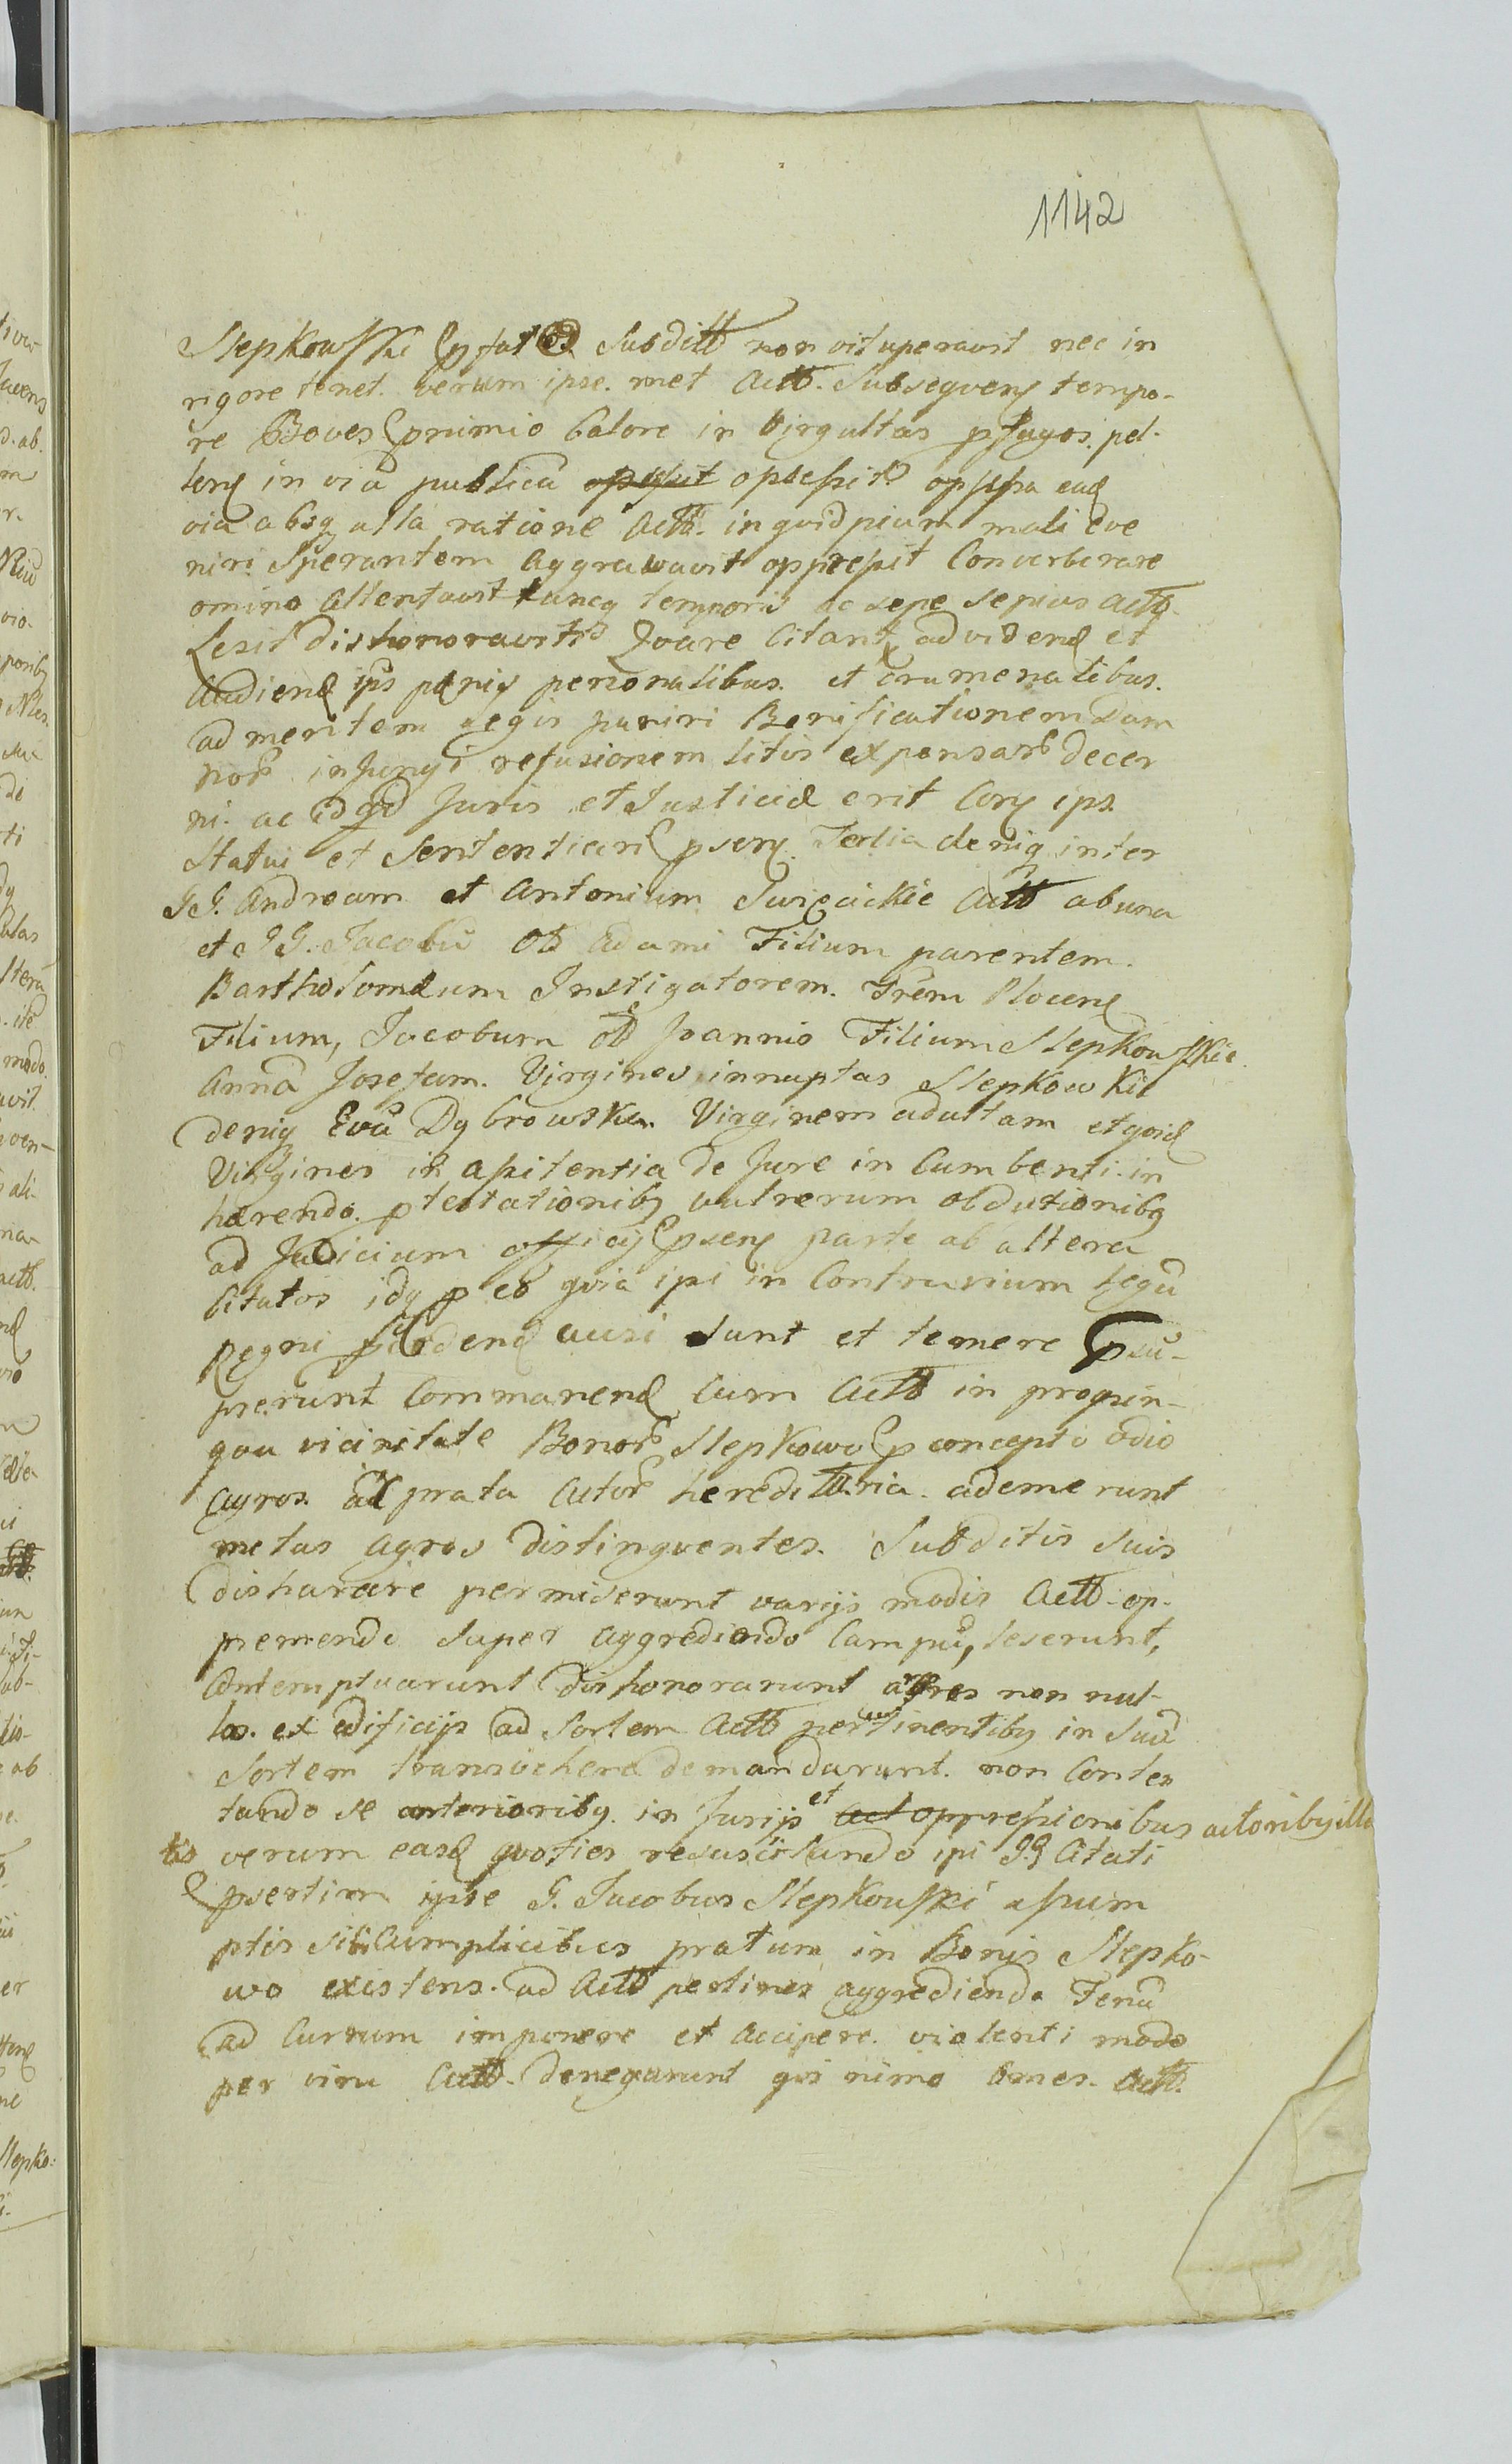 1142
Slepkowski subditt non vituperavit nec in
rigore tenet. verum ipse. met Actt. subsequens tempo-
re Boves pnimio Calore in Virgultas pfugos. pel-
lens in via publica opsepit
via absq ulla ratione Actt. in quidpium mali eve
niri sperantem aggravavit oppressit Converberare
omino attentavit tuncq temporis ac sepe sepius Actt
Lesit dishonoravit Quare Citant, ad vidend et
Audiend ips penis personalibus. et crumenalibus.
ad meritem legis puniri Bonificationem dam
nor injungi refusionem litis expensar decer
ni. ac id qd Juris et Justiciæ erit Cory ips
Statui et Sententiari pseny. Tertia deniq inter
GG. Andream et Antonium Swięcickie Actt ab una
et GG. Jacobu Olt Adami Filium parentem.
Bartholomæum Instigatorem. Trem Plocens
Filium, Jacobum olt Joannis Filium Slepkowskie
Anna Josefam. Virgines innuptas Slepkowskie
deniq Eva Dąbrowska. Virginem adultam et quid
Virgines in asitentia de Jure in Cumbenti. in
hærendo. ptestationibq vulnerum obductionibq
ad Judicium officij pseny parte ab altera
Citatos idq p eo quia ipi in Contrarium Legu
Regni ausi sunt et temere psu-
pserunt Commanend cum Actt in propin-
qua vicinitate Bonor Slepkowo pconcepto odio
agros. ac prata Actor hereditaria. ademerunt
metas agros distinguentes. Subditis suis
disharare permiserunt varijs modis Actt. op-
premendo super aggrediendo Campu, leserunt,
Contemptuarunt dishonorarunt non nul-
los. ex ædificijs ad Sortem Actt pertinentibq in sua
Sortem transvehere demandarunt. non Conten
tando se anterioribq. in Jurijs et act oppressionibus actoribq illa
tis verum easd quoties resuscitando ipi GG Citati
psertim ipse G. Jacobus Slepkowski assum
ptis sibi Cumplicibus pratum in Bonis Slepko-
wo existens. ad Actt pertinens aggrediendo Fenu
ad Currum imponere et accipere. violenti modo
per vim Actt. denegarunt qui nimo omes. Actt.